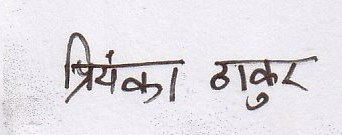 प्रियंका ठाकुर